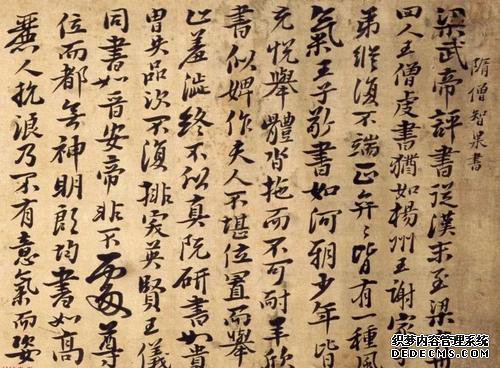 隋僧智果書
梁武帝評書從漢末至梁卅
四人王僧虔書猶如楊州王謝家
弟縱復不端正奕奕皆有一種風
氣王子敬書如河朔少年皆
充悅舉體沓拖而不可耐羊欣
書似婢作夫人不堪位置而舉
止羞澁終不似真阮研書如貴
胄失品次不復排突英賢王儀
同書如晉安帝非不處尊
位而都無神明殷均書如高
麗人抗浪乃不有意氣而姿
织梦内容管理系统
DEDECMS.COM